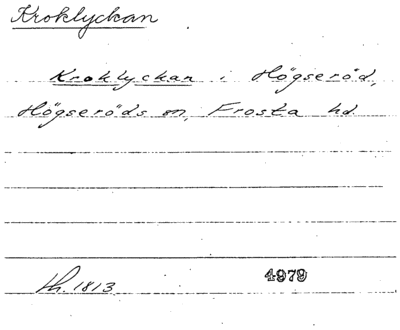 Kroklyckan
Kroklyckan i Högseröd,
Högseröds sn, Frosta hd
th. 1813
4979